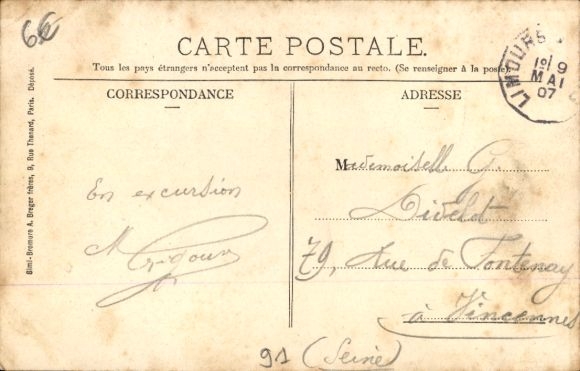 6€
CARTE POSTALE.
Tous les pays étrangers n'acceptent pas la correspondance au recto. (Se renseigner à la poste)
CORRESPONDANCE
ADRESSE
LIMOURS
9
MAI
07
Simi-Bromure A. Breger frères, 9, Rue Thenard, Paris. Déposé.
En excursion
Mademoiselle G.
Divelot
79, Rue de Fontenay
à Vincennes
91 (Seine)